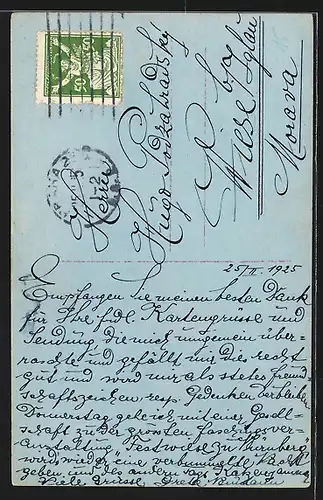 50
Herrn
Hugo Podzahradsky
Wiese bei Iglau
Morava
25/II. 1925
Empfangen Sie meinen besten Dank
für Ihre frdl. Kartengrüsse und
Sendung, die mich ungemein über-
raschte und gefällt mir Dies recht
gut und wird mir als stetes Freund-
schaftszeichen resp. Gedenken verbleiben.
Donnerstag gehe ich mit einer Gesell-
schaft zu der grössten Faschingsver-
anstaltung "Festwiese zu Nürnberg"
wird wieder eine verbummelte Nacht
geben und des anderen Tags
Viele Grüsse